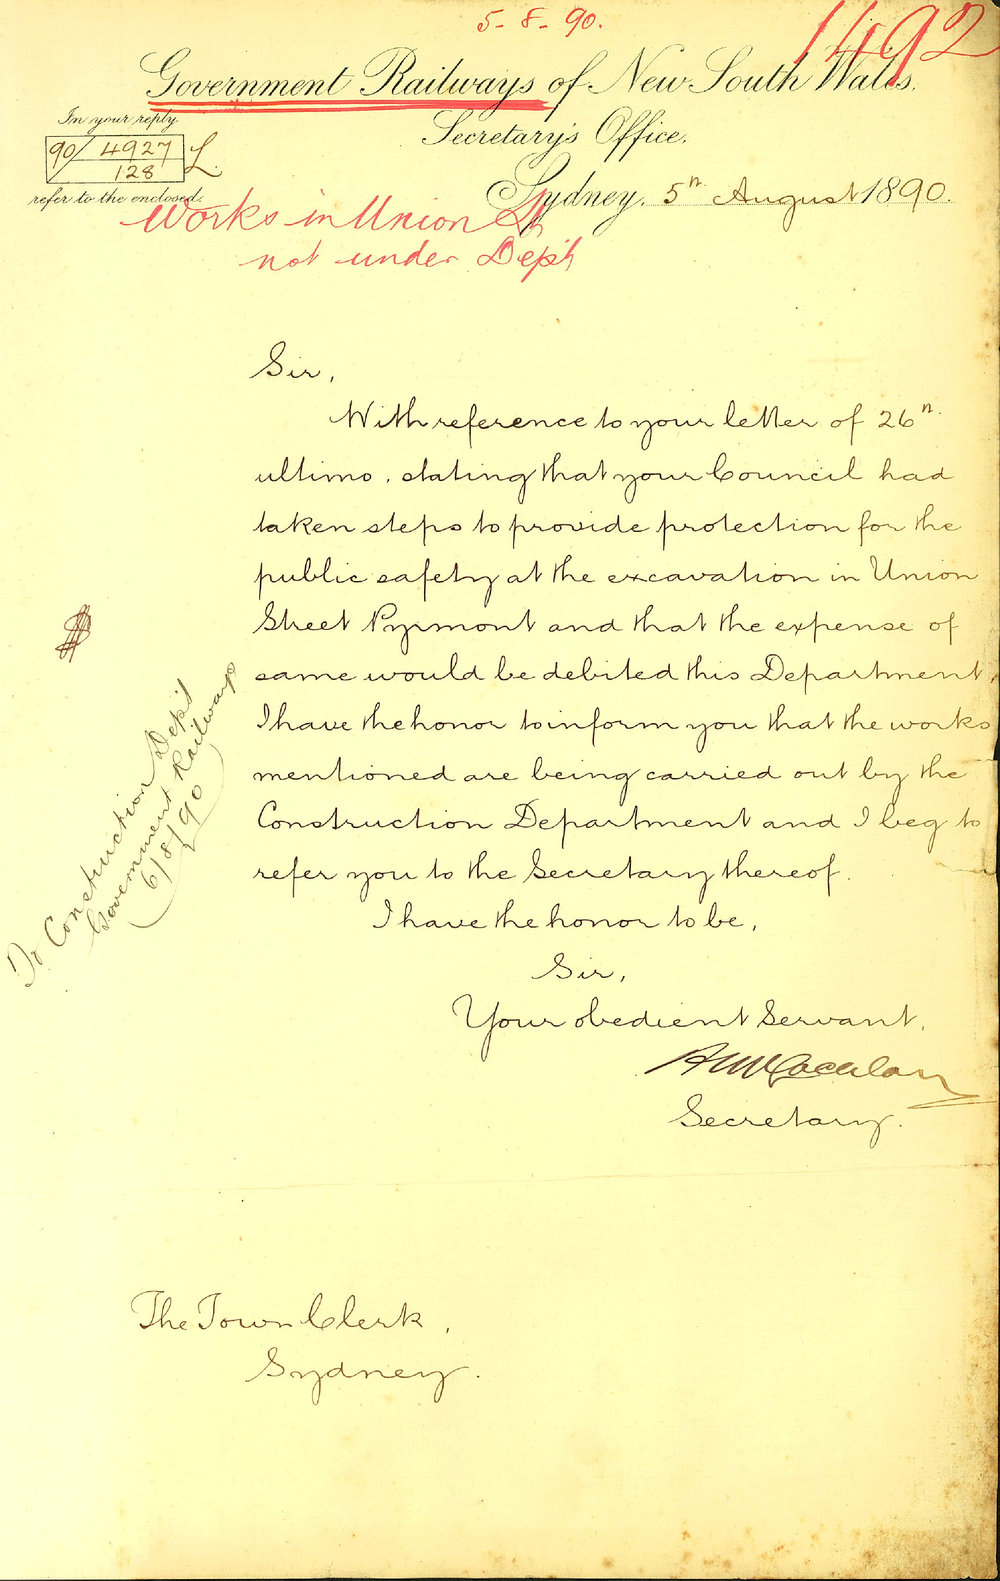 5-8-90.
1492
Government Railways of New South Wales.
In your reply
Secretary's Office.
90/4927
128
L.
refer to the enclosed.
Sydney, 5th August 1890.
Works in Union St
not under Dep't
Sir,
With reference to your letter of 26th
ultimo, stating that your Council had
taken steps to provide protection for the
public safety at the excavation in Union
Street Pyrmont and that the expense of
same would be debited this Department,
I have the honor to inform you that the works
mentioned are being carried out by the
Construction Department and I beg to
refer you to the Secretary thereof.
I have the honor to be,
Sir,
Your obedient Servant,
Secretary.
To Construction Dep't
Government Railways
6/8/90
The Town Clerk,
Sydney.